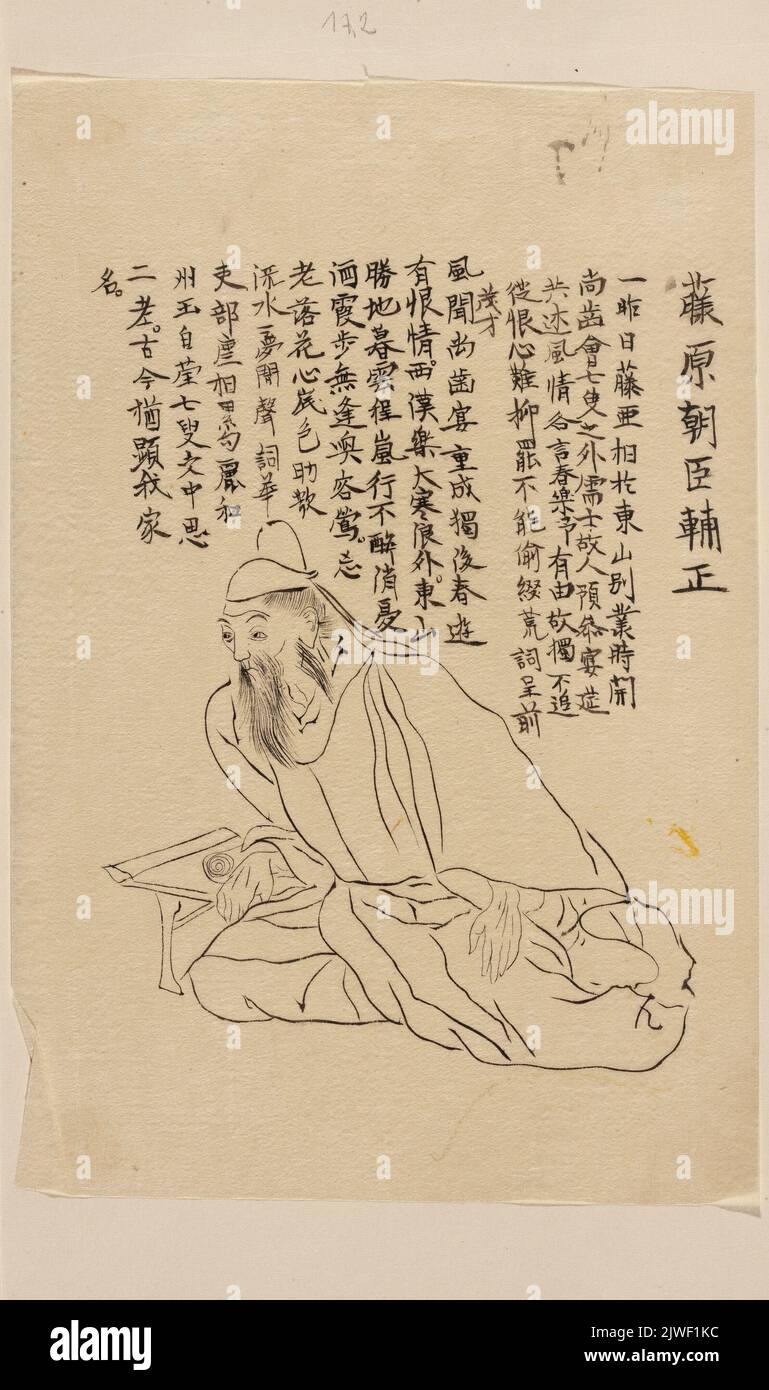 17,2
藤原朝臣輔正
一昨日藤亜相於東山別業時開
尚歯會七叟之外儒士故人預参宴莚
共述風情各言春樂予有由故獨不追
從恨心難抑罷不能偷綴荒詞呈前
茂才
風聞尚歯宴重成獨後春遊
有恨情西漢樂大寒浪外東山
勝地暮雲程嵐行不醉消憂
酒霞步無逢喚客鶯忘
老落花心底色助歎
流水夢閒聲詞華
吏部塵相
州玉自瑩七叟文中思
二老古今猶顕我家
名
alamy
alamy
alamy
a
a
a
alamy
Image ID: 2JWF1KC
www.alamy.com